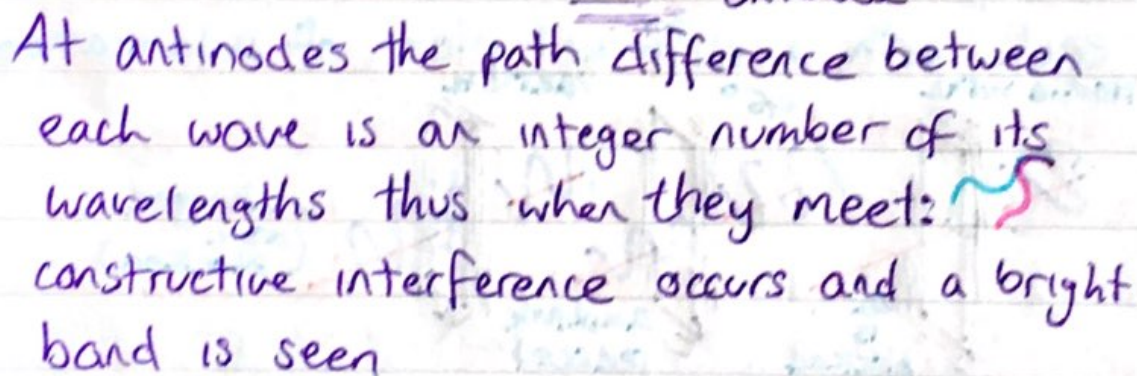 At antinodes the path difference between
each wave is an integer number of its
wavelengths thus when they meet:
constructive interference occurs and a bright
band is seen